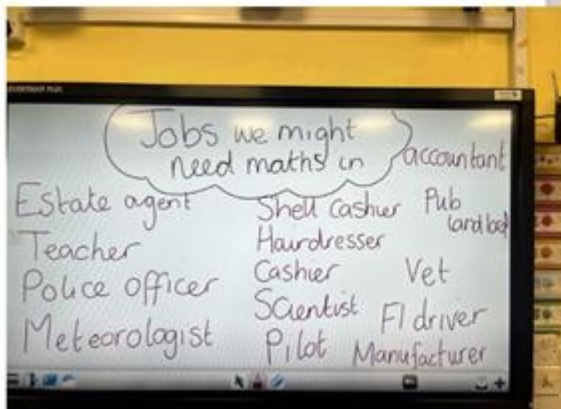 Jobs we might
need maths in
accountant
Estate agent
Teacher
Police officer
Meteorologist
Shell cashier
Hairdresser
Cashier
Scientist
Pilot
Pub
landlord
Vet
F1 driver
Manufacturer